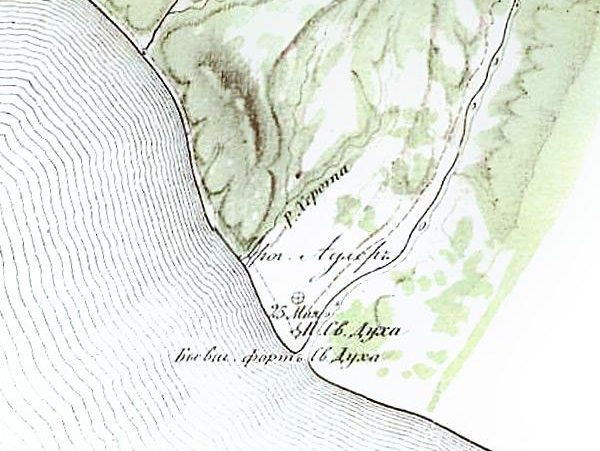 р. Херота
Уроч. Аулеръ
25 Мая
Св. Духа
Бывш. фортъ Св Духа